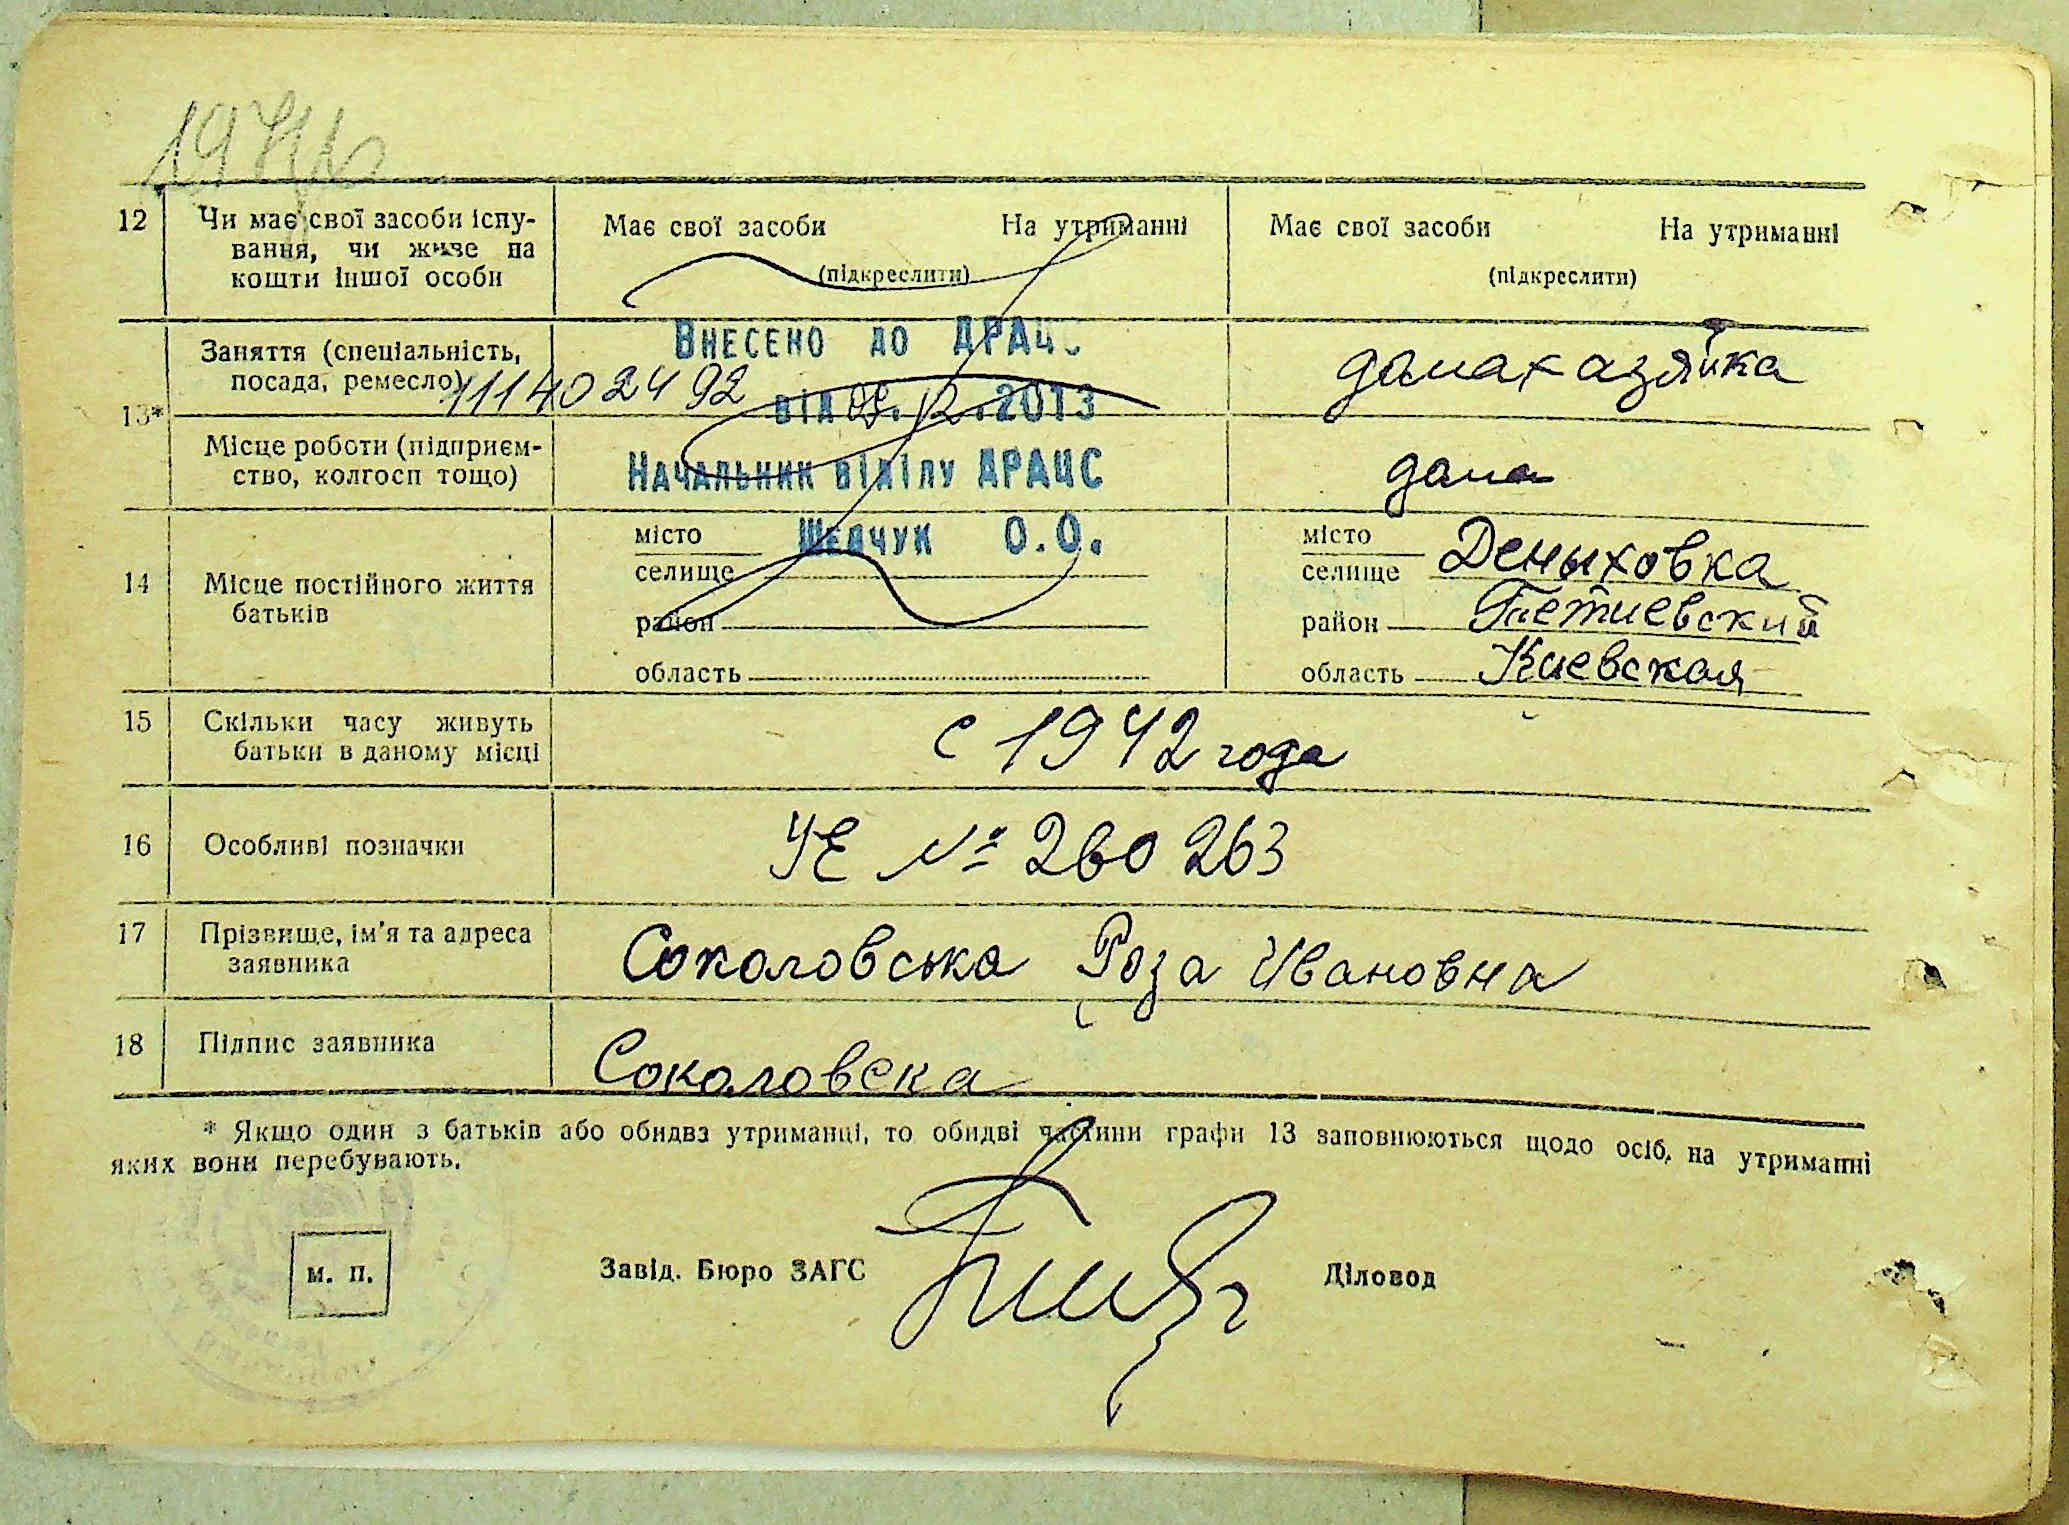 12
Чи має свої засоби існу-
вання, чи живе на
кошти іншої особи
Має свої засоби На утриманні
(підкреслити)
Має свої засоби На утриманні
(підкреслити)
13*
Заняття (спеціальність,
посада, ремесло)
11140 24 92
Внесено до ДРАЦС
від 2013
Начальник відділу ДРАЦС
О.О.
дамахазяйка
Місце роботи (підприєм-
ство, колгосп тощо)
дама
14
Місце постійного життя
батьків
місто
селище
район
область
місто
селище Деныховка
район Тетиевский
область Киевская
15
Скільки часу живуть
батьки в даному місці
с 1942 года
16
Особливі позначки
УЕ № 260 263
17
Прізвище, ім'я та адреса
заявника
Соколовська Роза Ивановна
18
Підпис заявника
Соколовска
* Якщо один з батьків або обидва утриманці, то обидві частини графи 13 заповнюються щодо осіб, на утриманні
яких вони перебувають.
м. п.
Завід. Бюро ЗАГС
Діловод